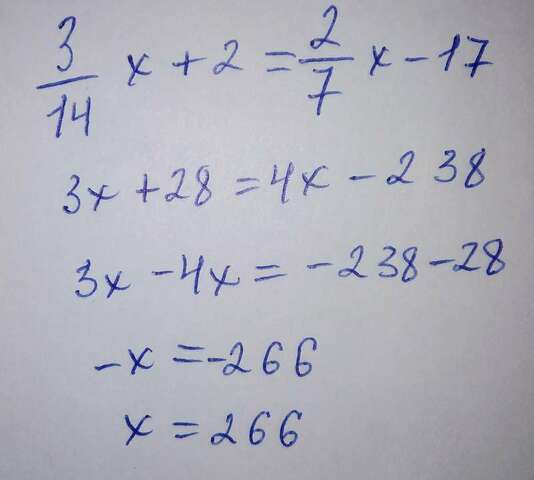 3/14 x + 2 = 2/7 x - 17
3x + 28 = 4x - 238
3x - 4x = -238 - 28
-x = -266
x = 266